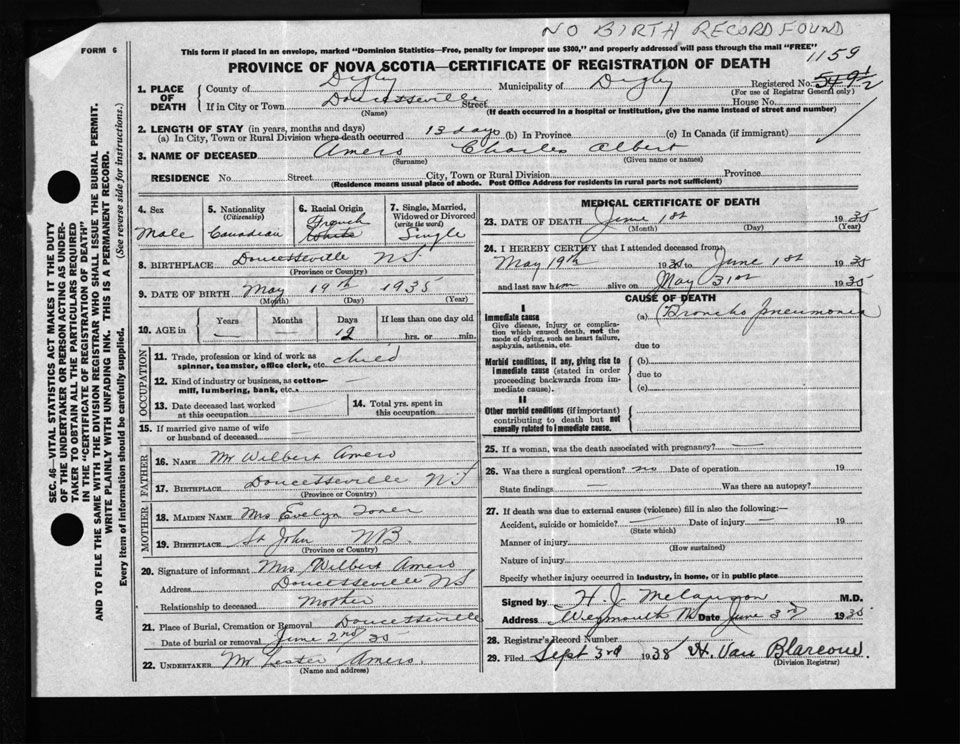 NO BIRTH RECORD FOUND
FORM 6
This form if placed in an envelope, marked "Dominion Statistics—Free, penalty for improper use $300," and properly addressed will pass through the mail "FREE"
1159
PROVINCE OF NOVA SCOTIA—CERTIFICATE OF REGISTRATION OF DEATH
1. PLACE OF DEATH
County of Digby Municipality of Digby Registered No. 549½
(For use of Registrar General only)
If in City or Town Doucetteville Street House No.
(Name) (If death occurred in a hospital or institution, give the name instead of street and number)
2. LENGTH OF STAY (in years, months and days)
(a) In City, Town or Rural Division where death occurred 13 days (b) In Province (c) In Canada (if immigrant)
3. NAME OF DECEASED Amero Charles Albert
(Surname) (Given name or names)
RESIDENCE No. Street City, Town or Rural Division Province
(Residence means usual place of abode. Post Office Address for residents in rural parts not sufficient)
4. Sex
Male
5. Nationality
(Citizenship)
Canadian
6. Racial Origin
French
White
7. Single, Married, Widowed or Divorced
(write the word)
Single
8. BIRTHPLACE Doucetteville NS
(Province or Country)
9. DATE OF BIRTH May 19th 1935
(Month) (Day) (Year)
10. AGE in
Years Months Days If less than one day old
12 hrs. or min.
OCCUPATION
11. Trade, profession or kind of work as
spinner, teamster, office clerk, etc. child
12. Kind of industry or business, as cotton-
mill, lumbering, bank, etc. —
13. Date deceased last worked
at this occupation
14. Total yrs. spent in
this occupation
15. If married give name of wife
or husband of deceased
FATHER
16. NAME Mr Wilbert Amero
17. BIRTHPLACE Doucetteville NS
(Province or Country)
MOTHER
18. MAIDEN NAME Mrs Evelyn
19. BIRTHPLACE St John NB
(Province or Country)
20. Signature of informant Mrs Wilbert Amero
Address Doucetteville NS
Relationship to deceased Mother
21. Place of Burial, Cremation or Removal Doucetteville
Date of burial or removal June 2nd 35
22. UNDERTAKER Mr Lester Amero.
(Name and address)
MEDICAL CERTIFICATE OF DEATH
23. DATE OF DEATH June 1st 1935
(Month) (Day) (Year)
24. I HEREBY CERTIFY that I attended deceased from
May 19th 1935 to June 1st 1935
and last saw him alive on May 31st 1935
CAUSE OF DEATH
I
Immediate cause (a) Broncho pneumonia
Give disease, injury or complica-
tion which caused death, not the
mode of dying, such as heart failure,
asphyxia, asthenia, etc.
due to
Morbid conditions, if any, giving rise to
immediate cause (stated in order
proceeding backwards from im-
mediate cause).
(b)
due to
(c)
II
Other morbid conditions (if important)
contributing to death but not
causally related to immediate cause.
25. If a woman, was the death associated with pregnancy? —
26. Was there a surgical operation? no Date of operation 19
State findings — Was there an autopsy?
27. If death was due to external causes (violence) fill in also the following:—
Accident, suicide or homicide? — Date of injury — 19
(State which)
Manner of injury
(How sustained)
Nature of injury
Specify whether injury occurred in industry, in home, or in public place
Signed by H. J. M.D.
Address Weymouth NS Date June 3rd 1935
28. Registrar's Record Number
29. Filed Sept 3rd 1935 H. Van Blarcom
(Division Registrar)
SEC. 46—VITAL STATISTICS ACT MAKES IT THE DUTY
OF THE UNDERTAKER OR PERSON ACTING AS UNDER-
TAKER TO OBTAIN ALL THE PARTICULARS REQUIRED
IN THE "CERTIFICATE OF REGISTRATION OF DEATH"
AND TO FILE THE SAME WITH THE DIVISION REGISTRAR WHO SHALL ISSUE THE BURIAL PERMIT.
WRITE PLAINLY WITH UNFADING INK. THIS IS A PERMANENT RECORD.
(See reverse side for instructions.)
Every item of information should be carefully supplied.